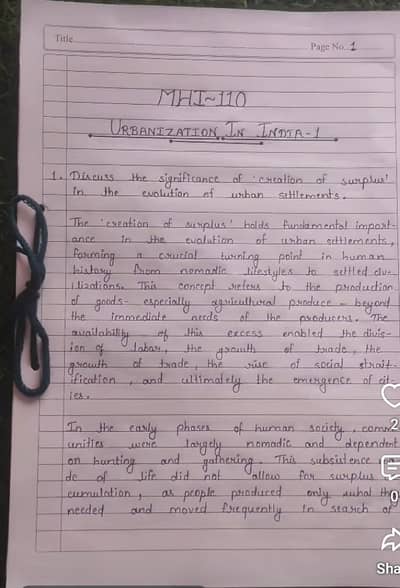 Title
Page No. 1
MHI-110
URBANIZATION IN INDIA-1
1. Discuss the significance of 'creation of surplus'
in the evolution of urban settlements.
The 'creation of surplus' holds fundamental import-
ance in the evolution of urban settlements,
forming a crucial turning point in human
history from nomadic lifestyles to settled civ-
ilizations. This concept refers to the production
of goods- especially agricultural produce - beyond
the immediate needs of the producers. The
availability of this excess enabled the divis-
ion of labor, the growth of trade, the
growth of trade, the rise of social strat-
ification, and ultimately the emergence of cit-
ies.
In the early phases of human society, comm
unities were largely nomadic and dependent
on hunting and gathering. This subsistence
de of life did not allow for surplus
cumulation, as people produced only what they
needed and moved frequently in search of
2
0
Sha